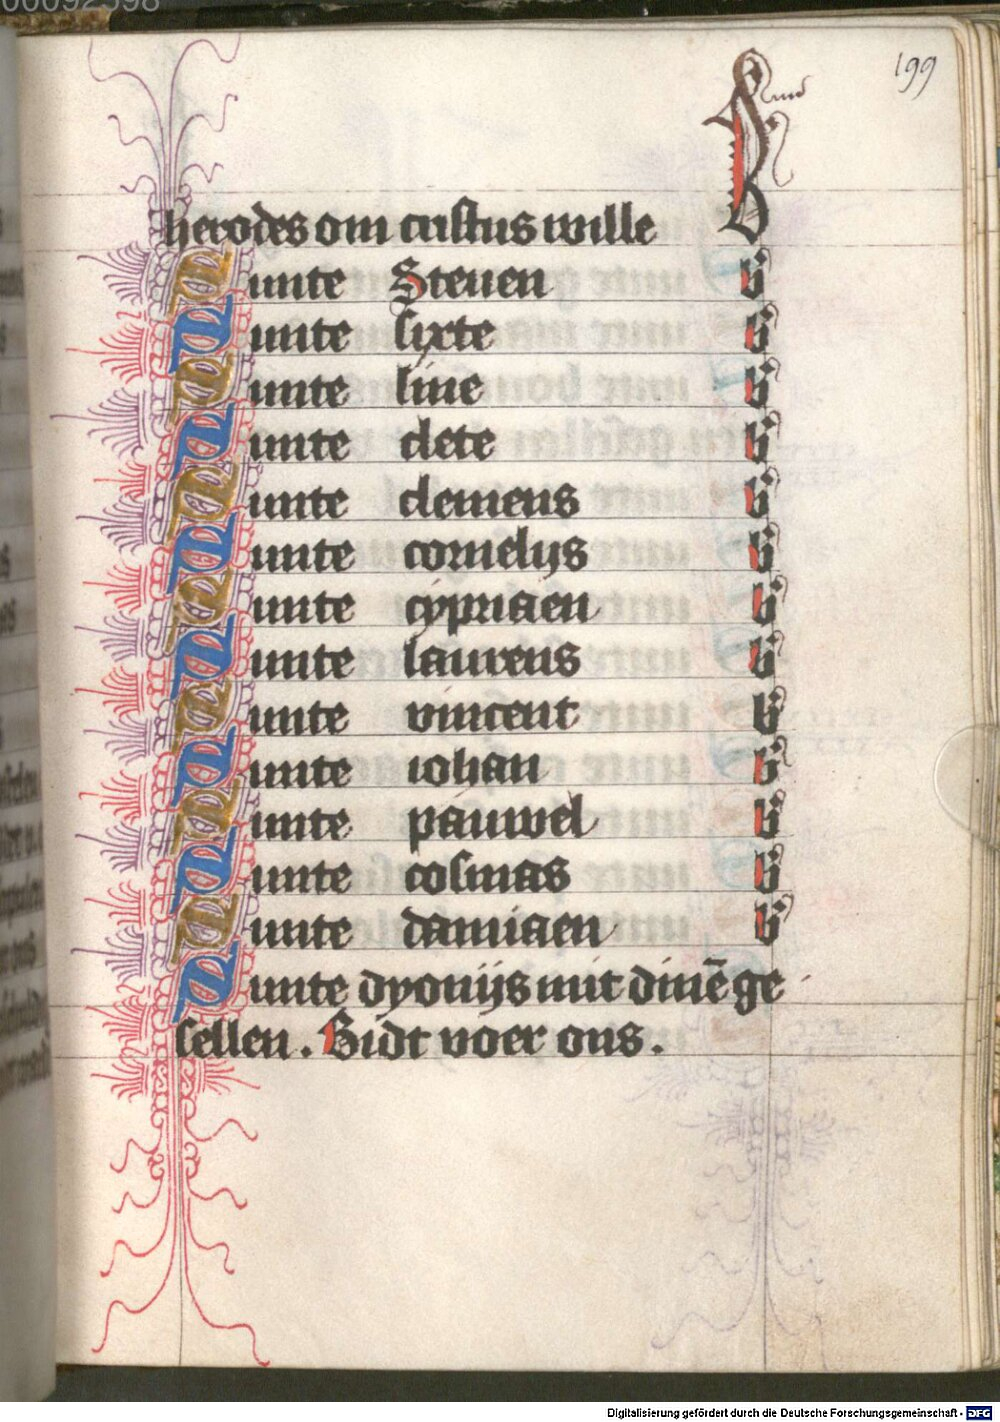 00092598
199
herodes om cristus wille B
Sunte Steuen b
Sunte sixte b
Sunte line b
Sunte clete b
Sunte clemens b
Sunte cornelijs b
Sunte cypriaen b
Sunte laurens b
Sunte vincent b
Sunte iohan b
Sunte pauwel b
Sunte cosmas b
Sunte damiaen b
Sunte dyonijs mit dinē ge
sellen. Bidt voer ons.
Digitalisierung gefördert durch die Deutsche Forschungsgemeinschaft - DFG